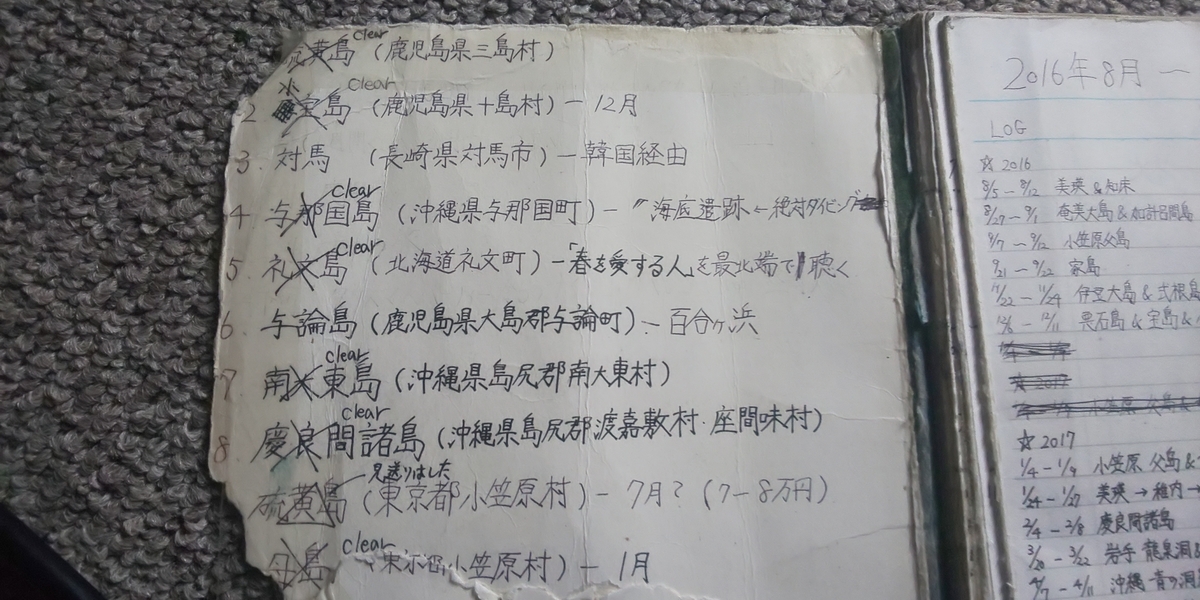 硫黄島 Clear (鹿児島県三島村)
2 小宝島 Clear (鹿児島県十島村) – 12月
3. 対馬 (長崎県対馬市) – 韓国経由
4 与那国島 clear (沖縄県与那国町) – 〃海底遺跡 ← 絶対ダイビング
5 礼文島 Clear (北海道礼文町) – 「春を愛する人」を最北端で聴く
6 与論島 (鹿児島県大島郡与論町) – 百合ヶ浜
7 南大東島 clear (沖縄県島尻郡南大東村)
8 慶良間諸島 clear (沖縄県島尻郡渡嘉敷村・座間味村)
硫黄島 見送りました (東京都小笠原村) – 7月? (7–8万円)
母島 clear 小笠原村) – 1月
2016年8月 〜
LOG
☆ 2016
美瑛 & 知床
奄美大島 & 加計呂間島
9/7 – 9/12 小笠原父島
9/21 – 9/22 家島
11/22 – 11/24 伊豆大島 & 式根島
悪石島 & 宝島 &
☆ 2017
1/4 – 1/9 小笠原 父島 &
1/24 – 1/27 美瑛 → 稚内 →
2/4 – 2/8 慶良間諸島
3/20 – 3/22 岩手 龍泉洞 &
4/7 – 4/11 沖縄 青の洞